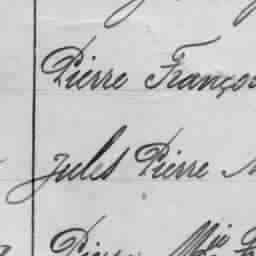 Pierre Franço
Jules Pierre
Pierre Mie